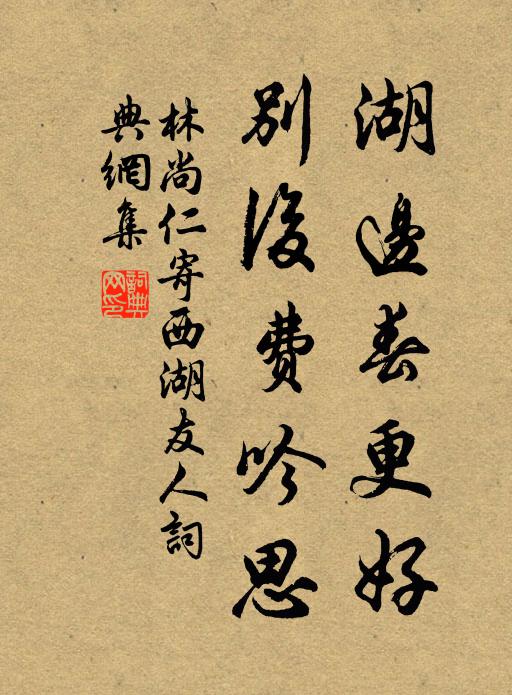 湖邊春更好
別後費吟思
林尚仁寄西湖友人詞
典網集
詞典
网印